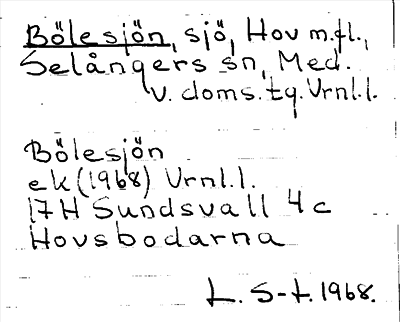 Bölesjön, sjö, Hov m.fl.,
Selångers sn, Med.
v. doms. tg. Vrnl.l.
Bölesjön
ek (1968) Vrnl.l.
17H Sundsvall 4c
Hovsbodarna
L. S-t. 1968.